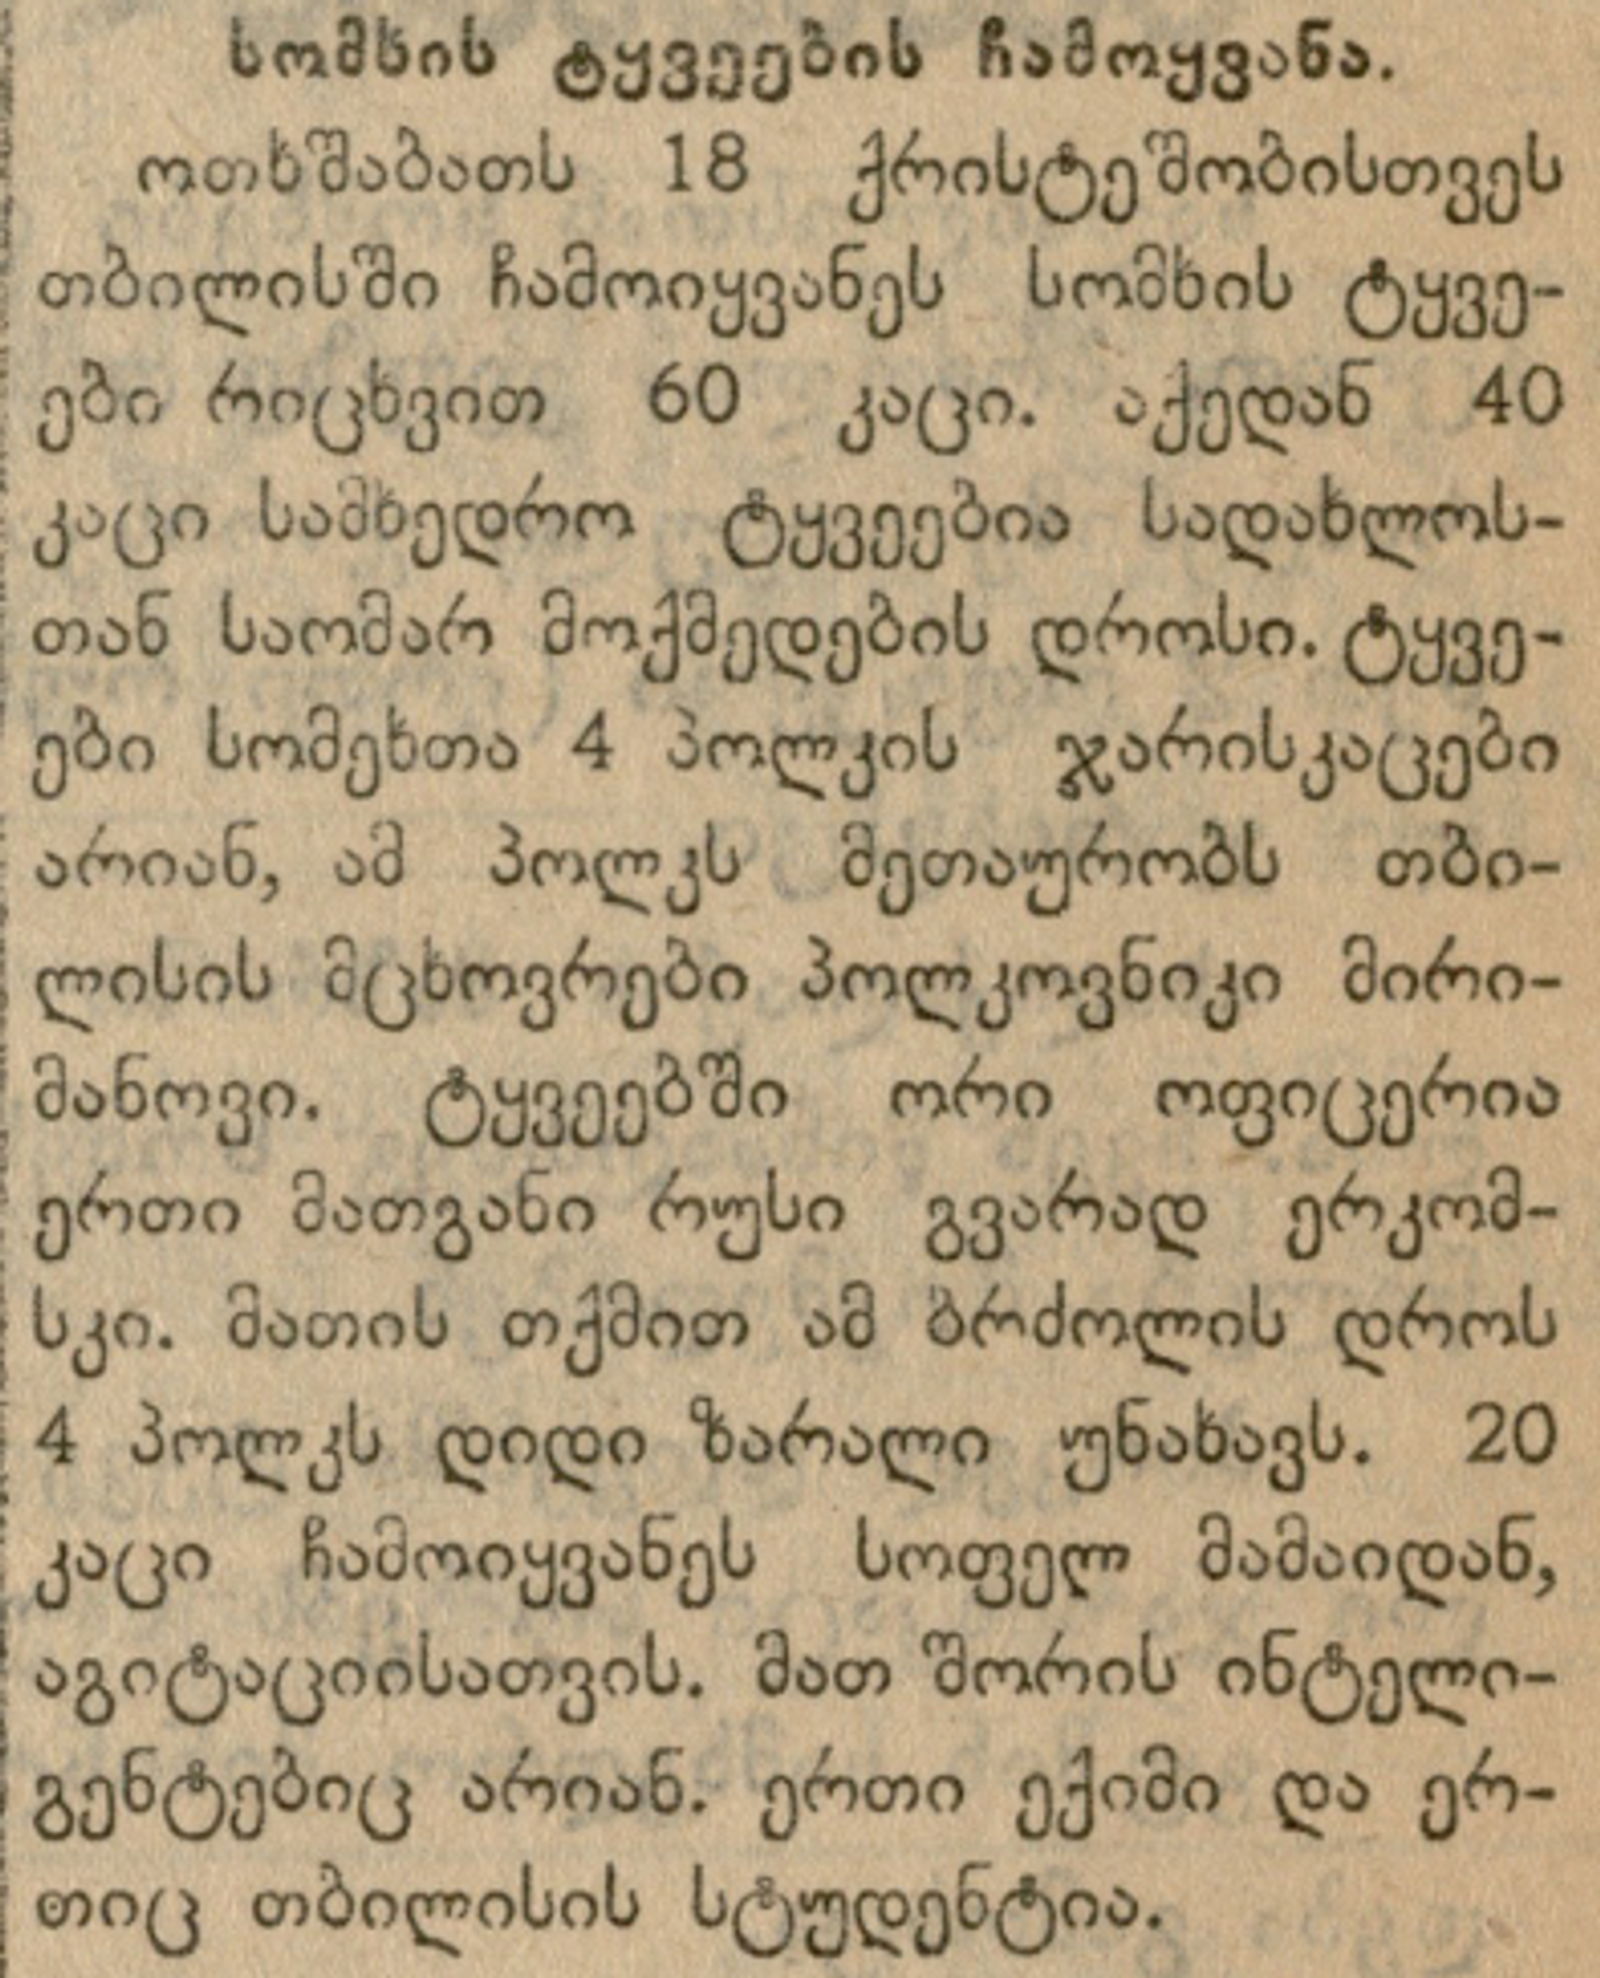 სომხის ტყვეების ჩამოყვანა.
ოთხშაბათს 18 ქრისტეშობისთვეს
თბილისში ჩამოიყვანეს სომხის ტყვე-
ები რიცხვით 60 კაცი. აქედან 40
კაცი სამხედრო ტყვეებია სადახლოს-
თან საომარ მოქმედების დროსი. ტყვე-
ები სომეხთა 4 პოლკის ჯარისკაცები
არიან, ამ პოლკს მეთაურობს თბი-
ლისის მცხოვრები პოლკოვნიკი მირი-
მანოვი. ტყვეებში ორი ოფიცერია
ერთი მათგანი რუსი გვარად ერკომ-
სკი. მათის თქმით ამ ბრძოლის დროს
4 პოლკს დიდი ზარალი უნახავს. 20
კაცი ჩამოიყვანეს სოფელ მამაიდან,
აგიტაციიისათვის. მათ შორის ინტელი-
გენტებიც არიან. ერთი ექიმი და ერ-
თიც თბილისის სტუდენტია.